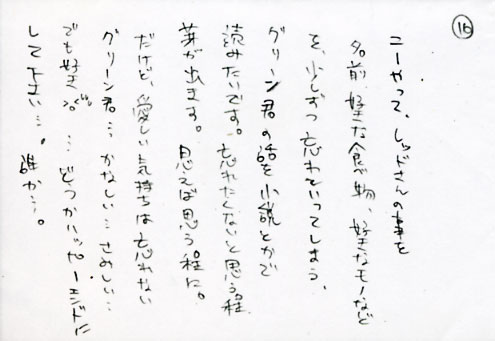 ⑯
こーやって、レッドさんの事を
名前、好きな食べ物、好きなモノなど
を、少しずつ忘れていってしまう、
グリーン君の話を小説とかで
読みたいです。忘れたくないと思う程
芽が出ます。思えば思う程に。
だけど、愛しい気持ちは忘れない
グリーン君…かなしい…さみしい…
でも好き…どうかハッピーエンドに
して下さい…。誰か…。